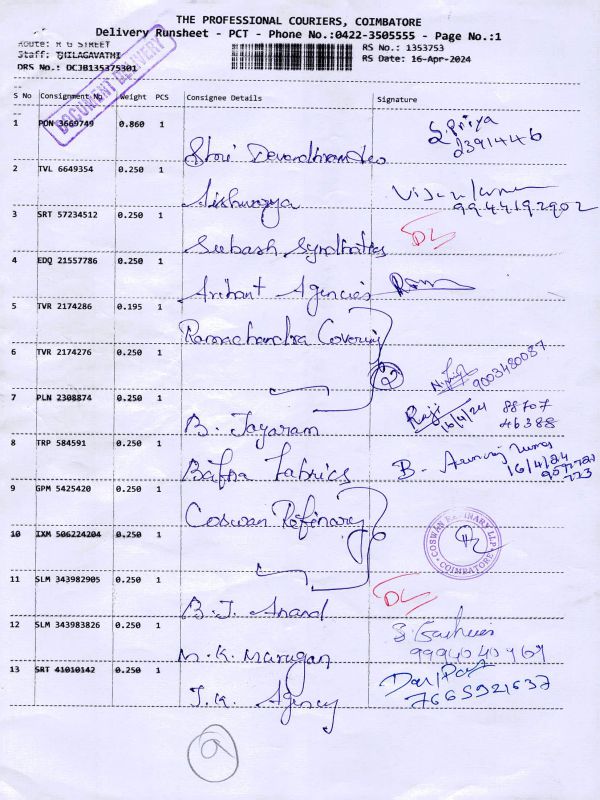 THE PROFESSIONAL COURIERS, COIMBATORE
Delivery Runsheet - PCT - Phone No.:0422-3505555 - Page No.:1
Route: R G STREET
Staff: THILAGAVATHI
DRS No.: DCJB135375301
RS No.: 1353753
RS Date: 16-Apr-2024
DOCUMENT DELIVERY
S No Consignment No Weight PCS Consignee Details Signature
1 PON 3669749 0.860 1 Shri Devardhram S.Priya
2391446
2 TVL 6649354 0.250 1 Aishwarya
9944192902
3 SRT 57234512 0.250 1 Subash Syndicates DL
4 EDQ 21557786 0.250 1 Arihant Agencies Ram
5 TVR 2174286 0.195 1 Ramachandra Covering
6 TVR 2174276 0.250 1 2 9003480087
7 PLN 2308874 0.250 1 B. Jayaram Raji 16/4/24 88707
46388
8 TRP 584591 0.250 1 Bafna Fabrics B.
16/4/24
9 GPM 5425420 0.250 1 Coswan Refinary
10 IXM 506224204 0.250 1 2 COSWAN REFINARY LLP COIMBATORE
11 SLM 343982905 0.250 1 B.J. Anand DL
12 SLM 343983826 0.250 1 M.K. Murugan S
13 SRT 41010142 0.250 1 J.K. Agency
7665921637
9